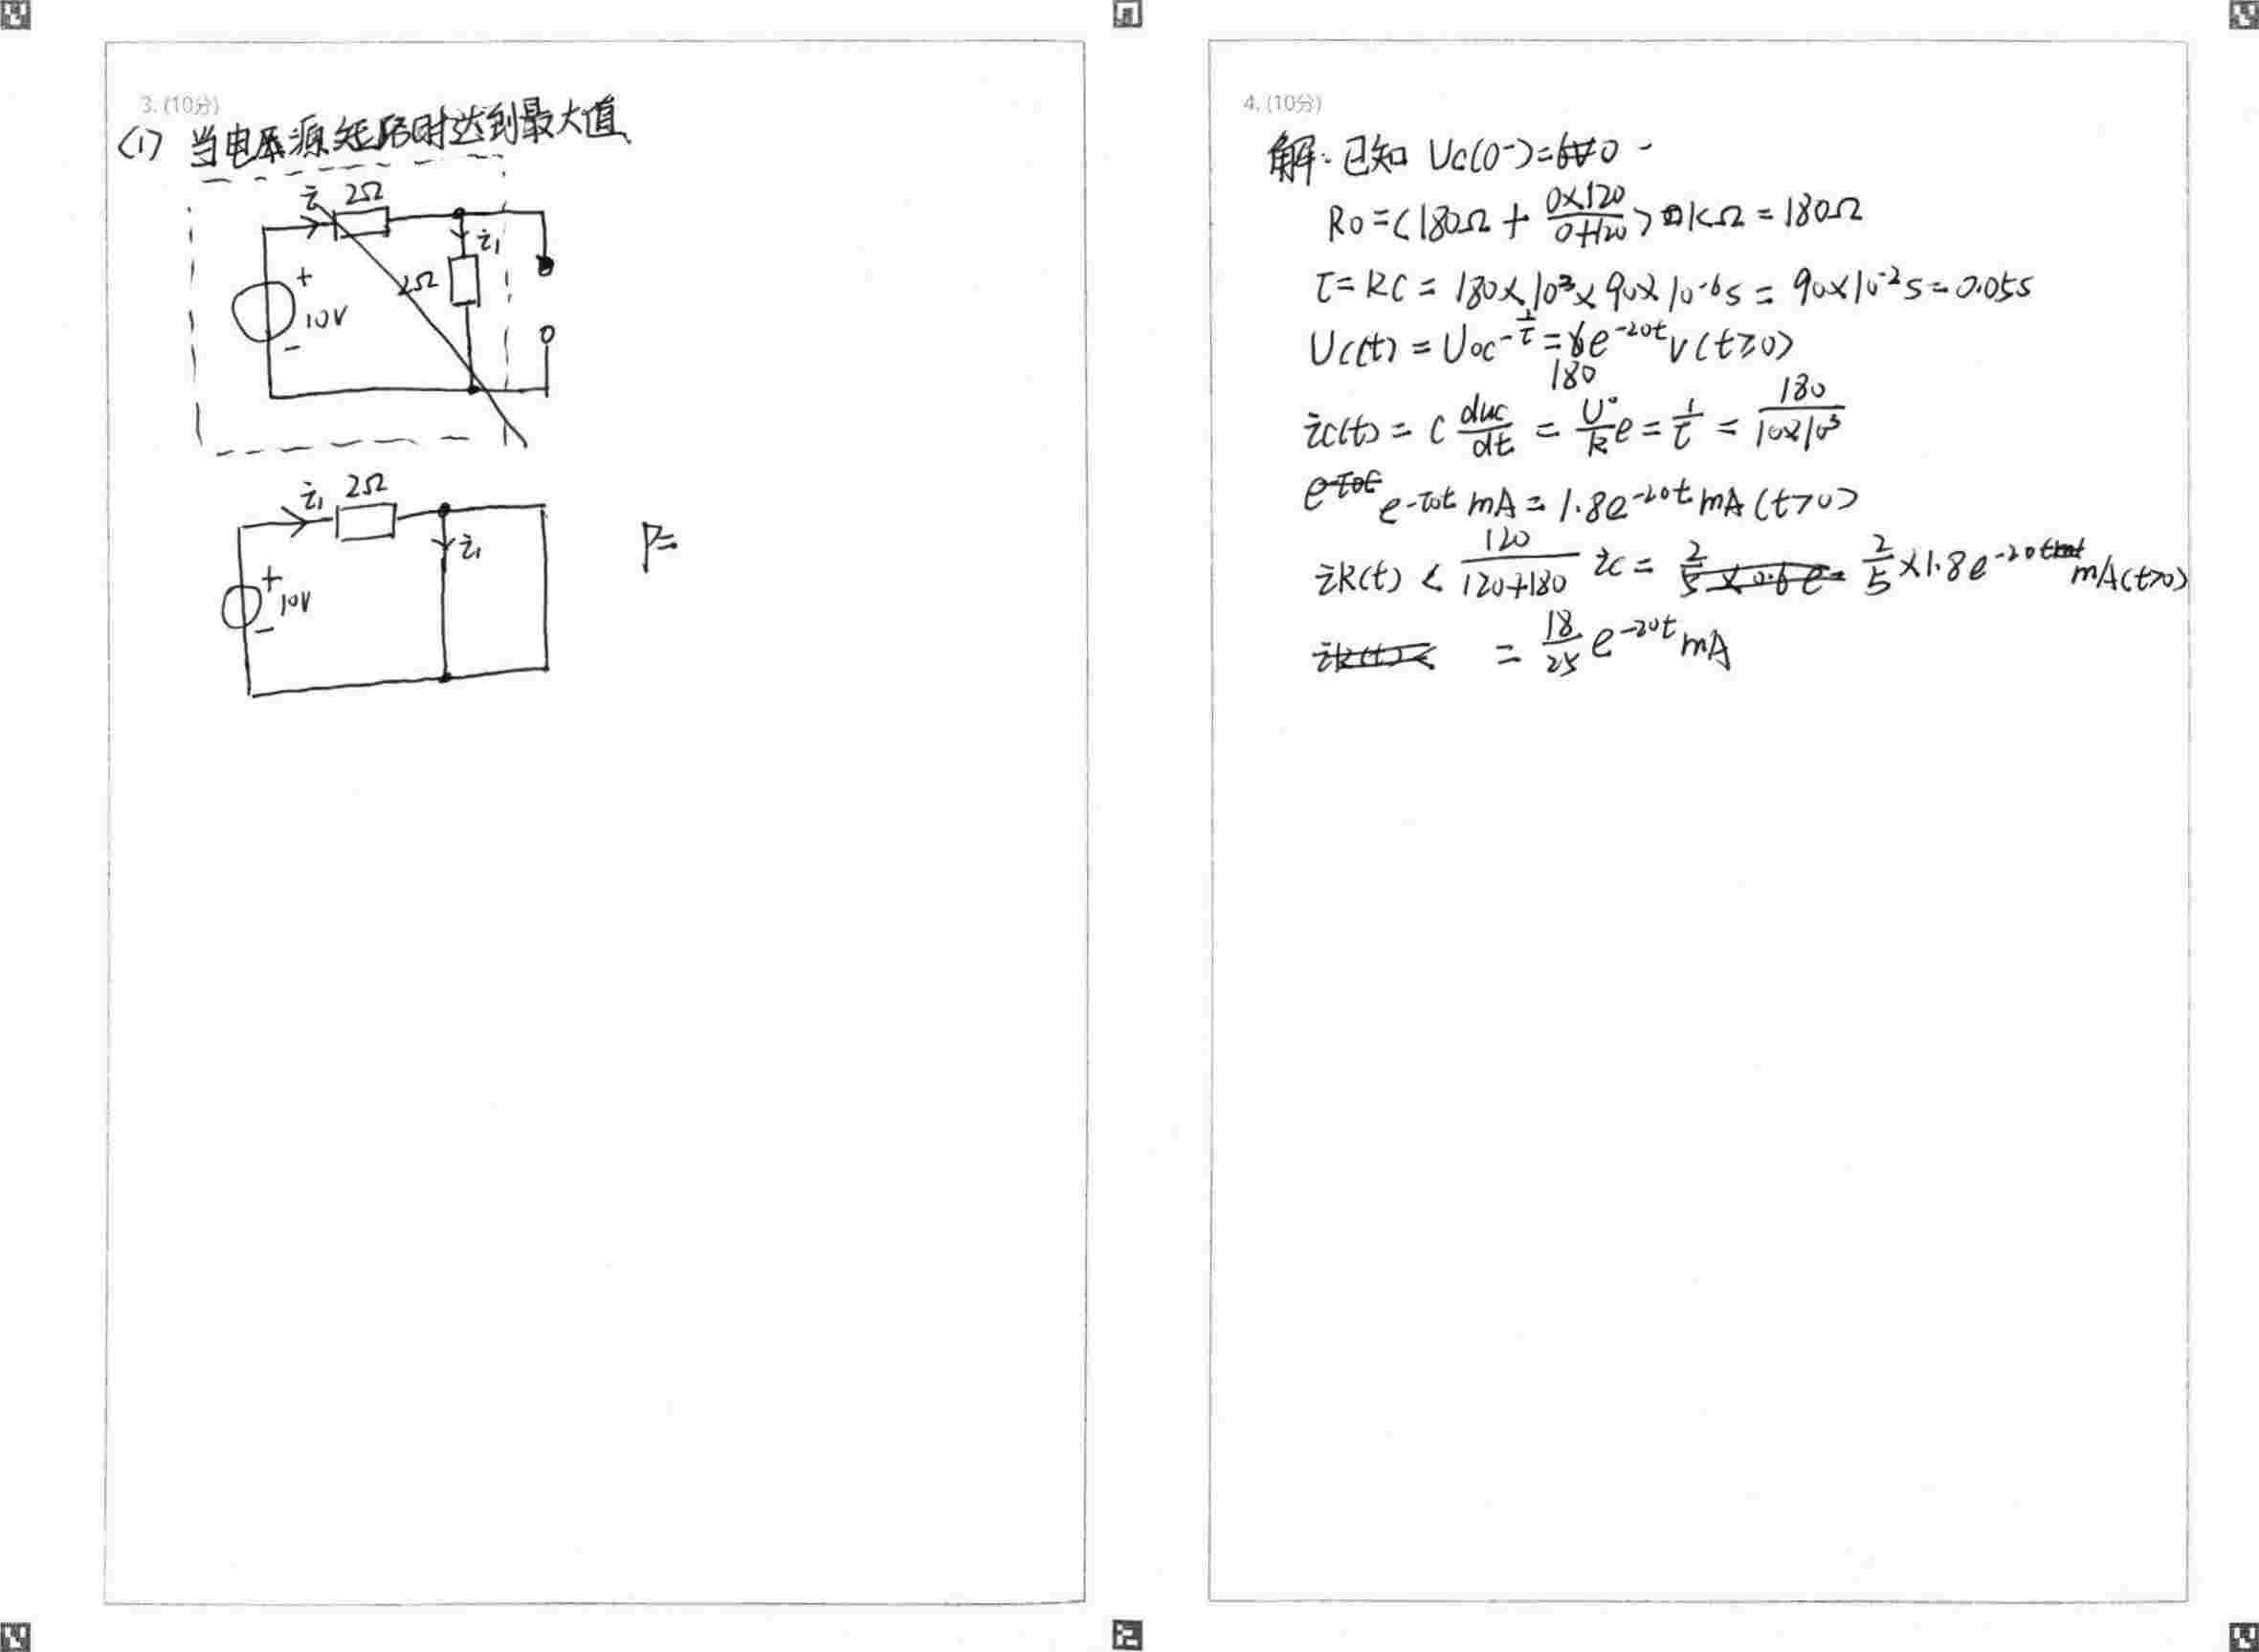 3. (10分)
(1) 当电压源短路时达到最大值.
i 2Ω
i₁
2Ω
+
10V
-
i₁ 2Ω
i₁
+
10V
-
P=
4. (10分)
解: 已知 Uc(0⁻)=0
R0=(180Ω + 0×120/0+120) KΩ = 180Ω
τ = RC = 180×10³×90×10⁻⁶s = 90×10⁻²s = 0.05s
Uc(t) = U0c^-t/τ = e^-20t V (t≥0)
180
ic(t) = C duc/dt = U°/R e = 1/τ = 180/10×10³
e^-20t mA = 1.8e^-20t mA (t>0)
iR(t) < 120/120+180 ic = 2/5 × 1.8e^-20t mA (t>0)
= 18/25 e^-20t mA